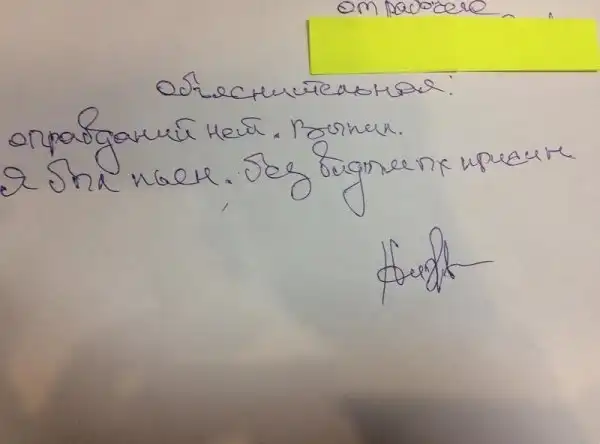 от рабочего
объяснительная:
оправданий нет. Выпил.
Я был пьен. без видимых причин